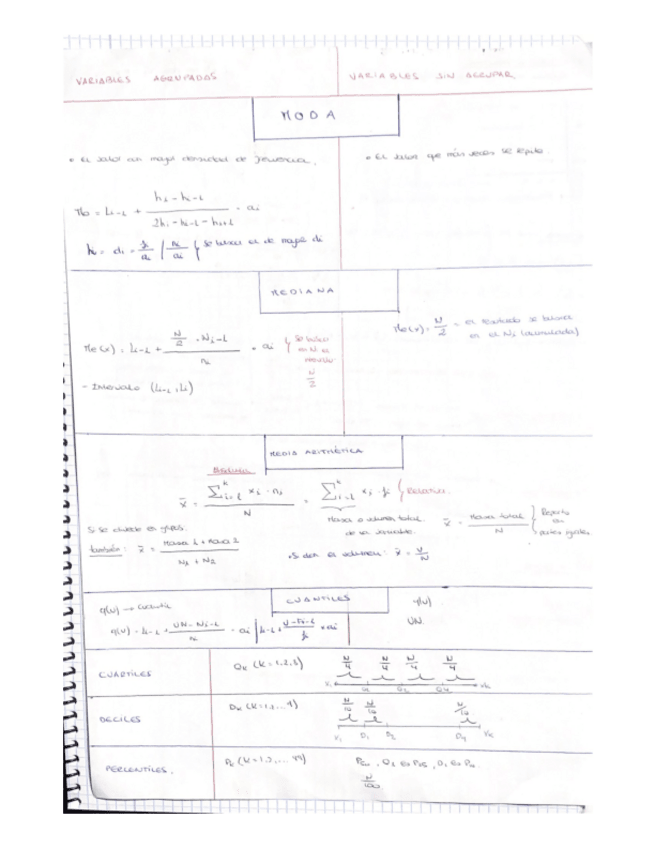 VARIABLES AGRUPADAS
VARIABLES SIN AGRUPAR
MODA
• EL valor con mayor densidad de frecuencia.
• EL valor que más veces se repite.
Mo = Li-1 + (hi - hi-1) / (2hi - hi-1 - hi+1) · ai
hi = di = fi/ai / ni/ai { se busca el de mayor di
MEDIANA
Me(x) = Li-1 + (N/2 - Ni-1) / ni · ai { Se busca en Ni el resultado N/2
Me(x) = N/2 = el resultado se busca en el Ni (acumulada)
- Intervalo (Li-1, Li)
MEDIA ARITMÉTICA
Absoluta
x̄ = Σ^k i=1 xi · ni / N = Σ^k i=1 xi · fi { Relativa
Masa o volumen total de la variable.
x̄ = Masa total / N { Reparto en partes iguales
Si se divide en grupos
también: x̄ = Masa 1 + Masa 2 / N1 + N2
• Si dan el volumen: x̄ = V/N
CUANTILES
q(U) → Cuantil
q(U)
q(U) = Li-1 + (UN - Ni-1) / ni · ai | Li-1 + (U - Fi-1) / fi · ai
UN
CUARTILES
QK (K = 1,2,3)
N/4 N/4 N/4 N/4
DECILES
DK (K = 1,2...9)
N/10 N/10 N/10
X1 D1 D2 D9 XK
PERCENTILES.
PK (K = 1,2,...99)
N/100